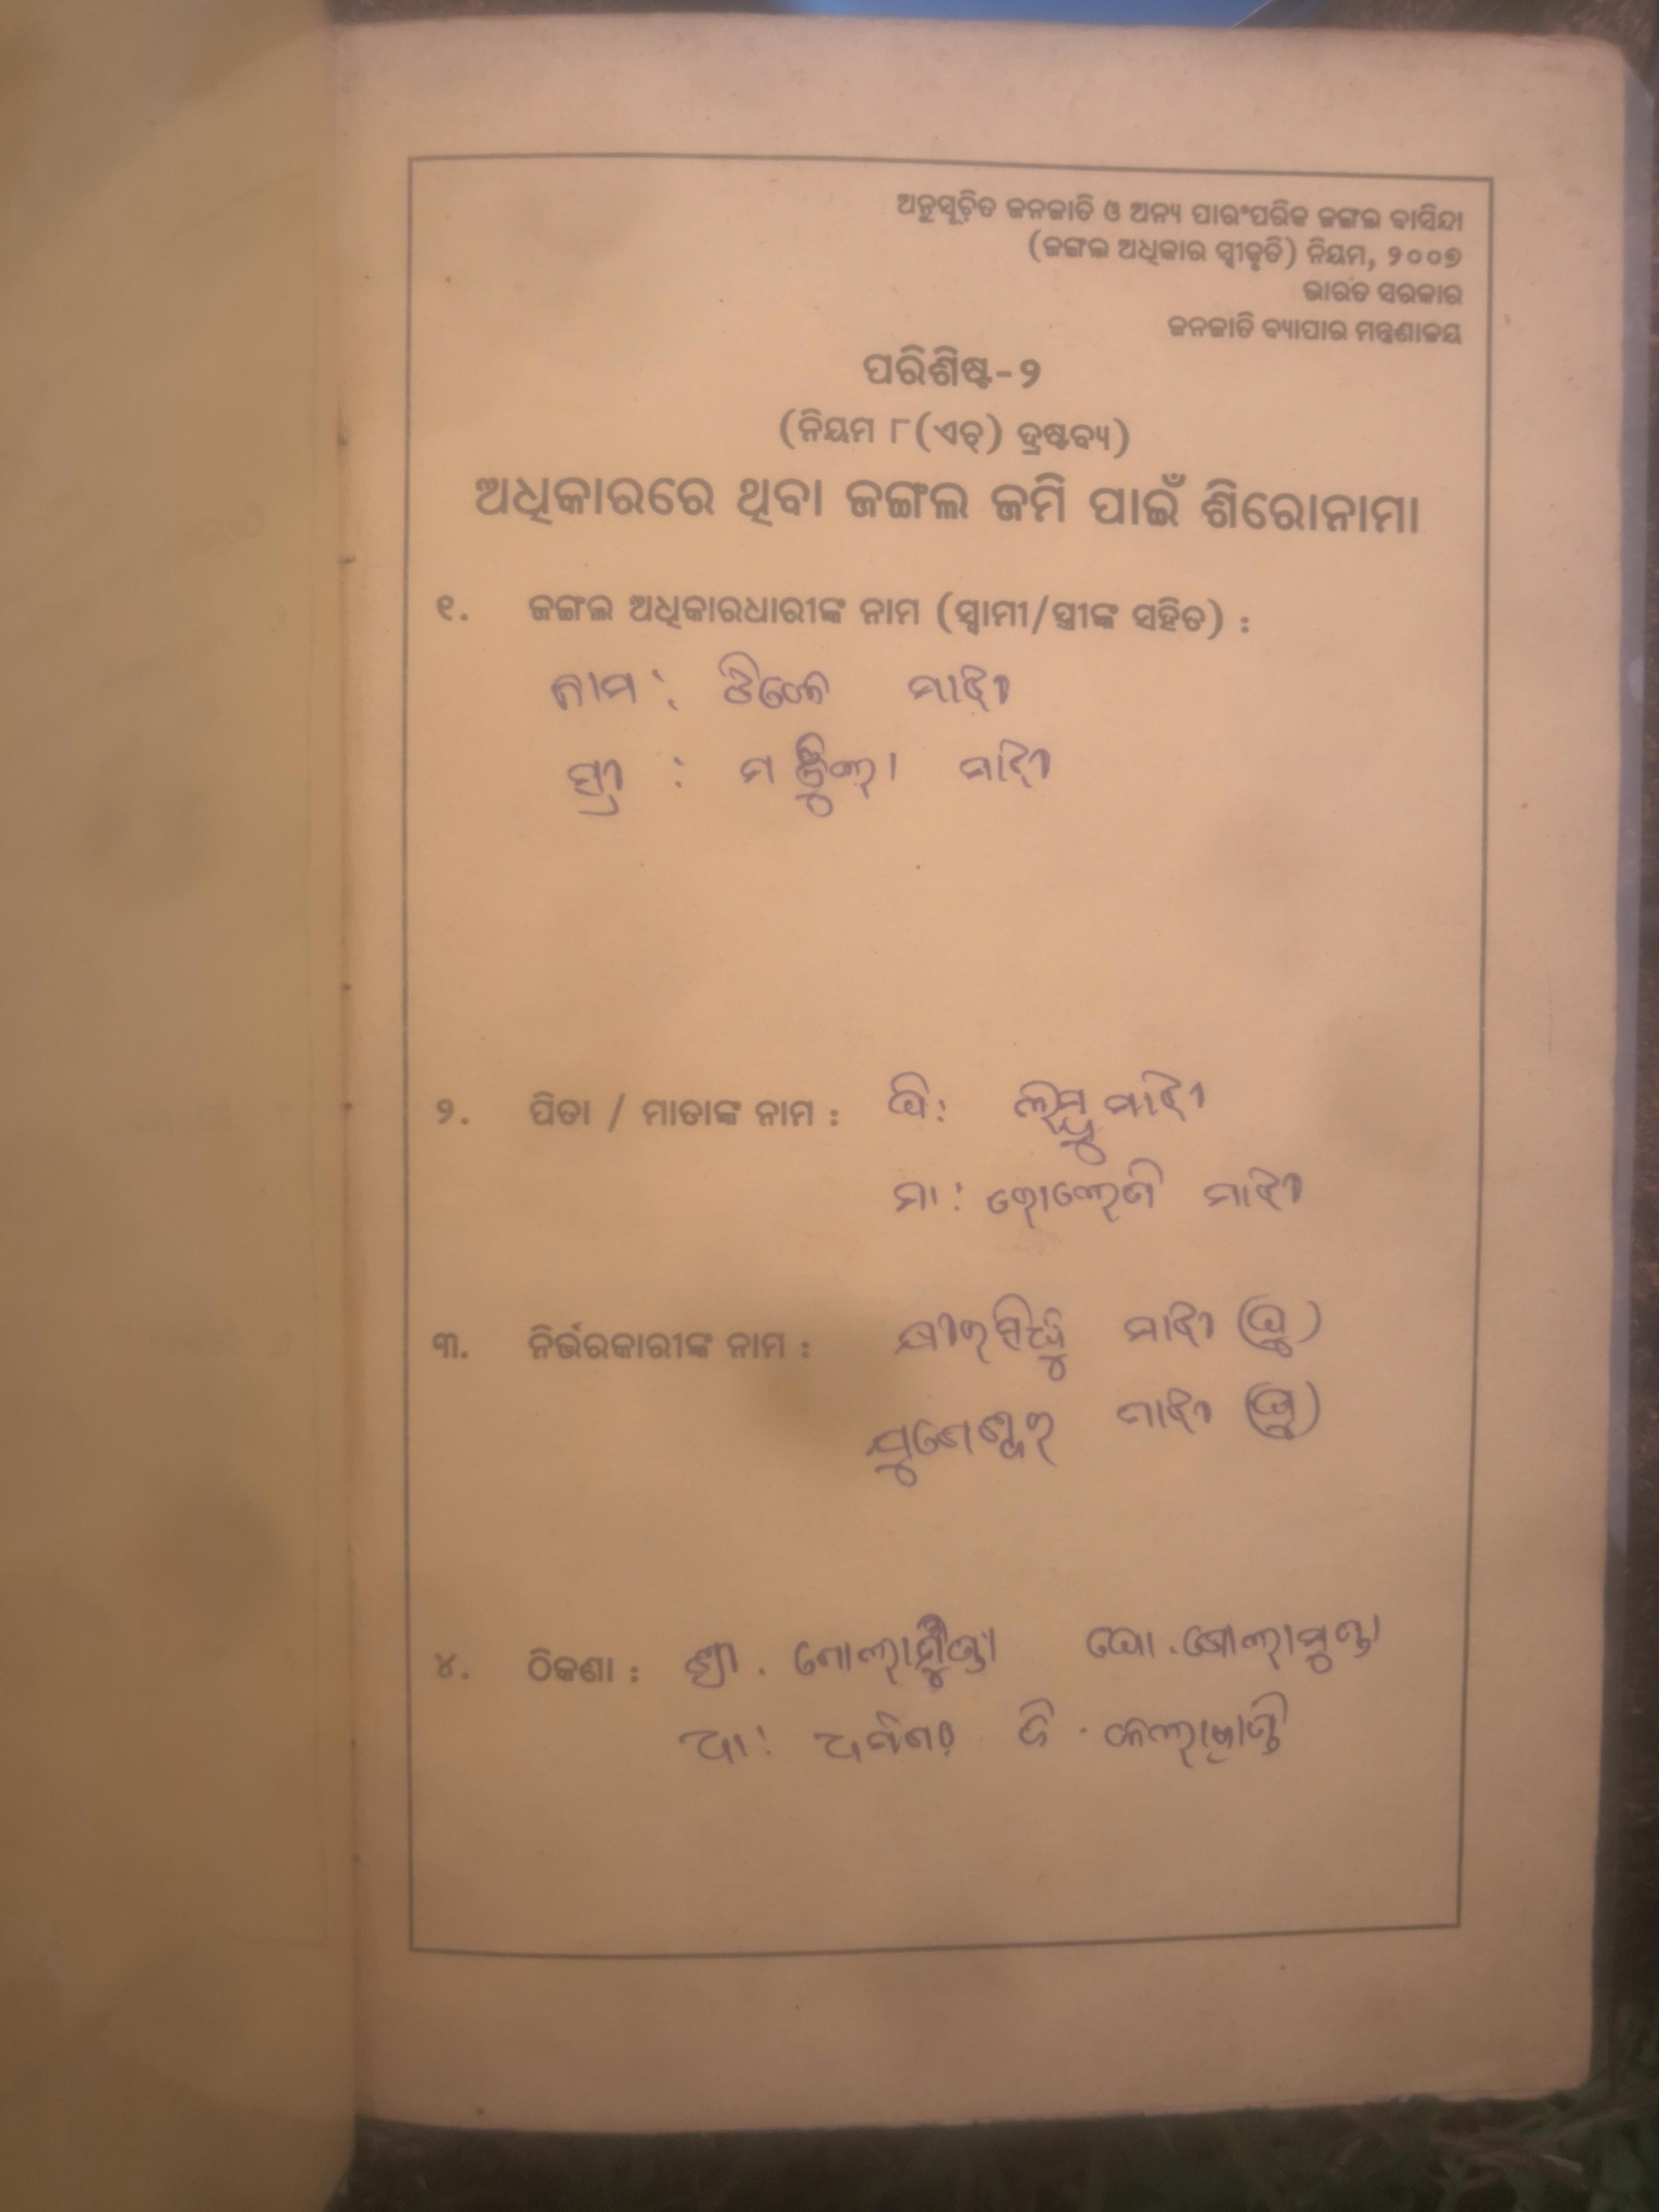 ଅନୁସୂଚିତ ଜନଜାତି ଓ ଅନ୍ୟ ପାରଂପରିକ ଜଙ୍ଗଲ ବାସିନ୍ଦା
(ଜଙ୍ଗଲ ଅଧିକାର ସ୍ୱୀକୃତି) ନିୟମ, ୨୦୦୭
ଭାରତ ସରକାର
ଜନଜାତି ବ୍ୟାପାର ମନ୍ତ୍ରଣାଳୟ
ପରିଶିଷ୍ଟ-୨
(ନିୟମ ୮(ଏଚ୍) ଦ୍ରଷ୍ଟବ୍ୟ)
ଅଧିକାରରେ ଥିବା ଜଙ୍ଗଲ ଜମି ପାଇଁ ଶିରୋନାମା
୧. ଜଙ୍ଗଲ ଅଧିକାରଧାରୀଙ୍କ ନାମ (ସ୍ୱାମୀ/ସ୍ତ୍ରୀଙ୍କ ସହିତ) :
ନାମ : ମାଝୀ
ସ୍ତ୍ରୀ : ମାଝୀ
୨. ପିତା / ମାତାଙ୍କ ନାମ : ପି: ମାଝୀ
ମା: ମାଝୀ
୩. ନିର୍ଭରକାରୀଙ୍କ ନାମ : ମାଝୀ (ପୁ)
ମାଝୀ (ପୁ)
୪. ଠିକଣା : ଗ୍ରା. ଗୋଲାମୁଣ୍ଡା ପୋ. ଗୋଲାମୁଣ୍ଡା
ଥା: ଧର୍ମଗଡ଼ ଜି. କଳାହାଣ୍ଡି